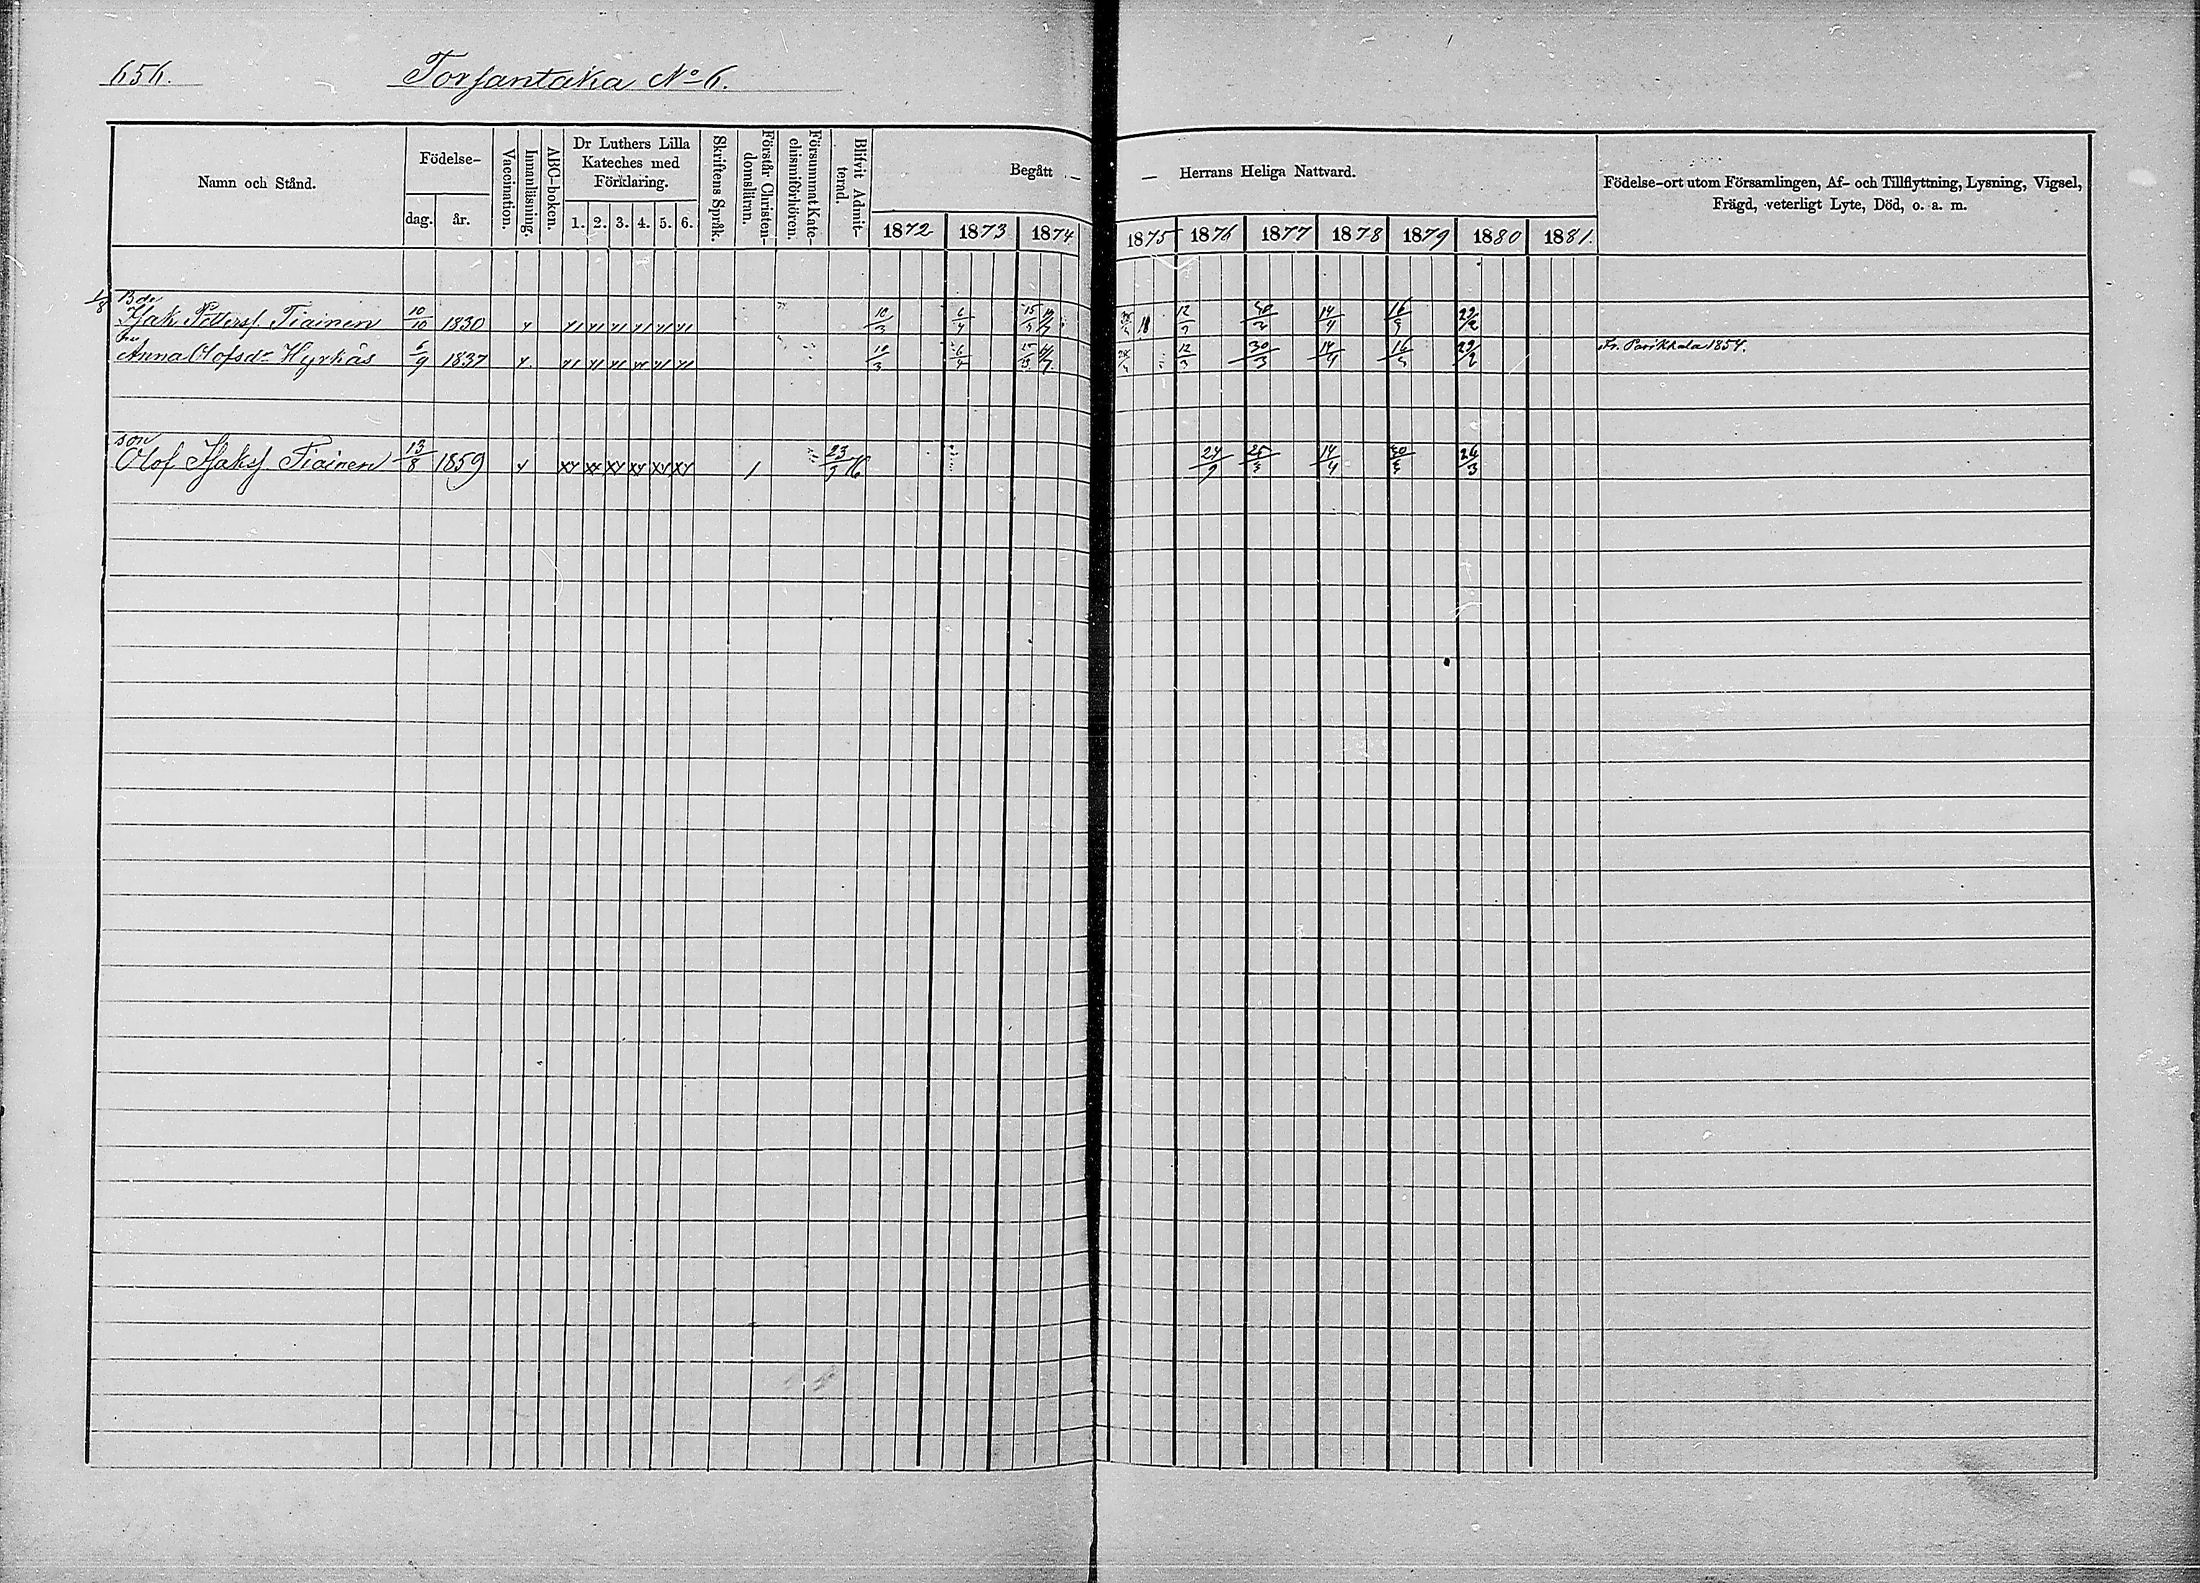 656.
Torsantaka No 6.
Namn och Stånd.
Födelse-
dag.
år.
Vaccination.
Innanläsning.
ABC-boken.
Dr Luthers Lilla
Kateches med
Förklaring.
1. 2. 3. 4. 5. 6.
Skriftens Språk.
Förstår Christen-
domsläran.
Försummat Kate-
chismiförhören.
Blifvit Admit-
terad
Begått —
— Herrans Heliga Nattvard.
1872 1873 1874 1875 1876 1877 1878 1879 1880 1881.
Födelse-ort utom Församlingen, Af- och Tillflyttning, Lysning, Vigsel,
Frägd, veterligt Lyte, Död, o. a. m.
1/8 Bde
Isak Petterss. Tiainen 10/10 1830 10/3 6/4 12/3 14/4 29/2
hu
Anna Olofsdr Hyrkäs 6/9 1837 10/3 6/4 12/3 30/3 14/4 29/2 Fr. Parikkala 1854.
son
Olof Isakss. Tiainen 13/8 1859 1 14/4 26/3